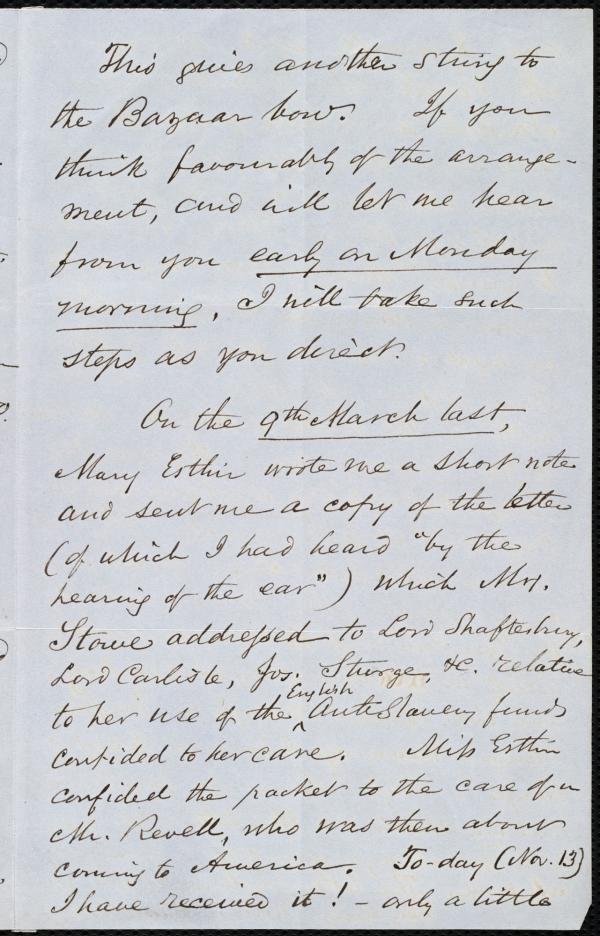 This gives another string to
the Bazaar bow. If you
think favourably of the arrange-
ment, and will let me hear
from you early on Monday
morning, I will take such
steps as you direct.
On the 9th March last,
Mary Estlin wrote me a short note
and sent me a copy of the letter
(of which I had heard "by the
hearing of the ear") which Mrs.
Stowe addressed to Lord Shaftesbury,
Lord Carlisle, Jos. Sturge, &c. relative
to her use of the English AntiSlavery funds
confided to her care. Miss Estlin
confided the packet to the care of a
Mr. Revell, who was then about
coming to America. To-day (Nov. 13)
I have received it! - only a little